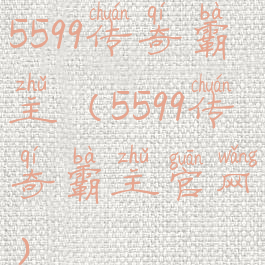 chuán qí bà
5599传奇霸
zhǔ chuán
主（5599传
qí bà zhǔ guān wǎng
奇霸主官网
）